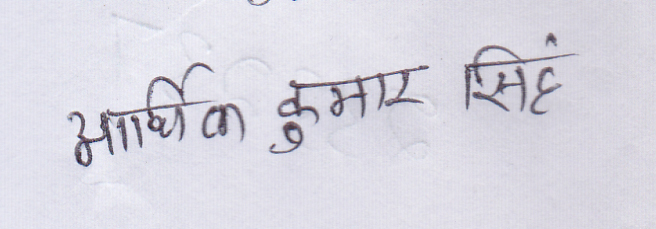 आर्थिक कुमार सिहं